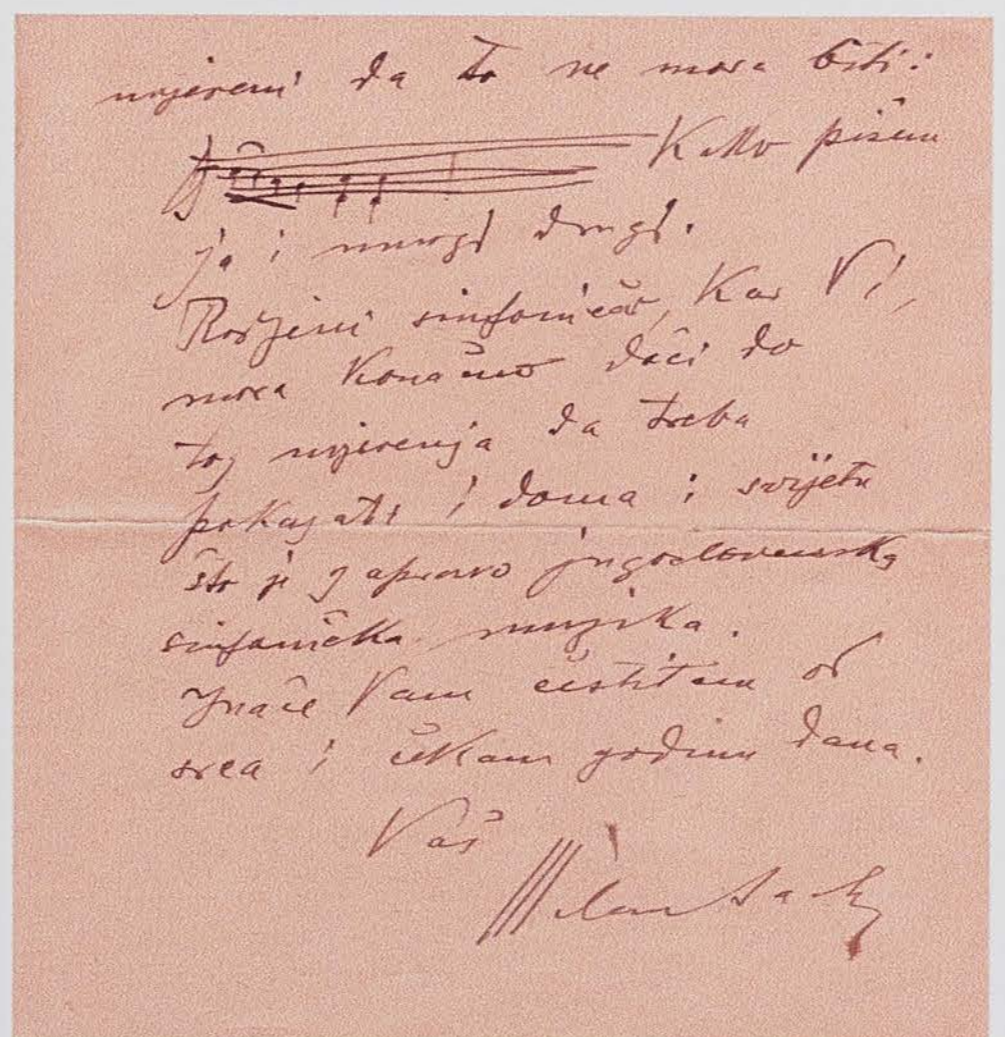 uvjereni da to ne mora biti:
Kako pišem
ja i mnogi drugi.
Rodjeni sinfoničar, kao Vi,
mora konačno doći do
tog uvjerenja da treba
pokazati i doma i svijetu
što je zapravo jugoslovenska
sinfonička muzika.
Inače Vam čestitam od
srca i čekam godinu dana.
Vaš
Milan Sachs